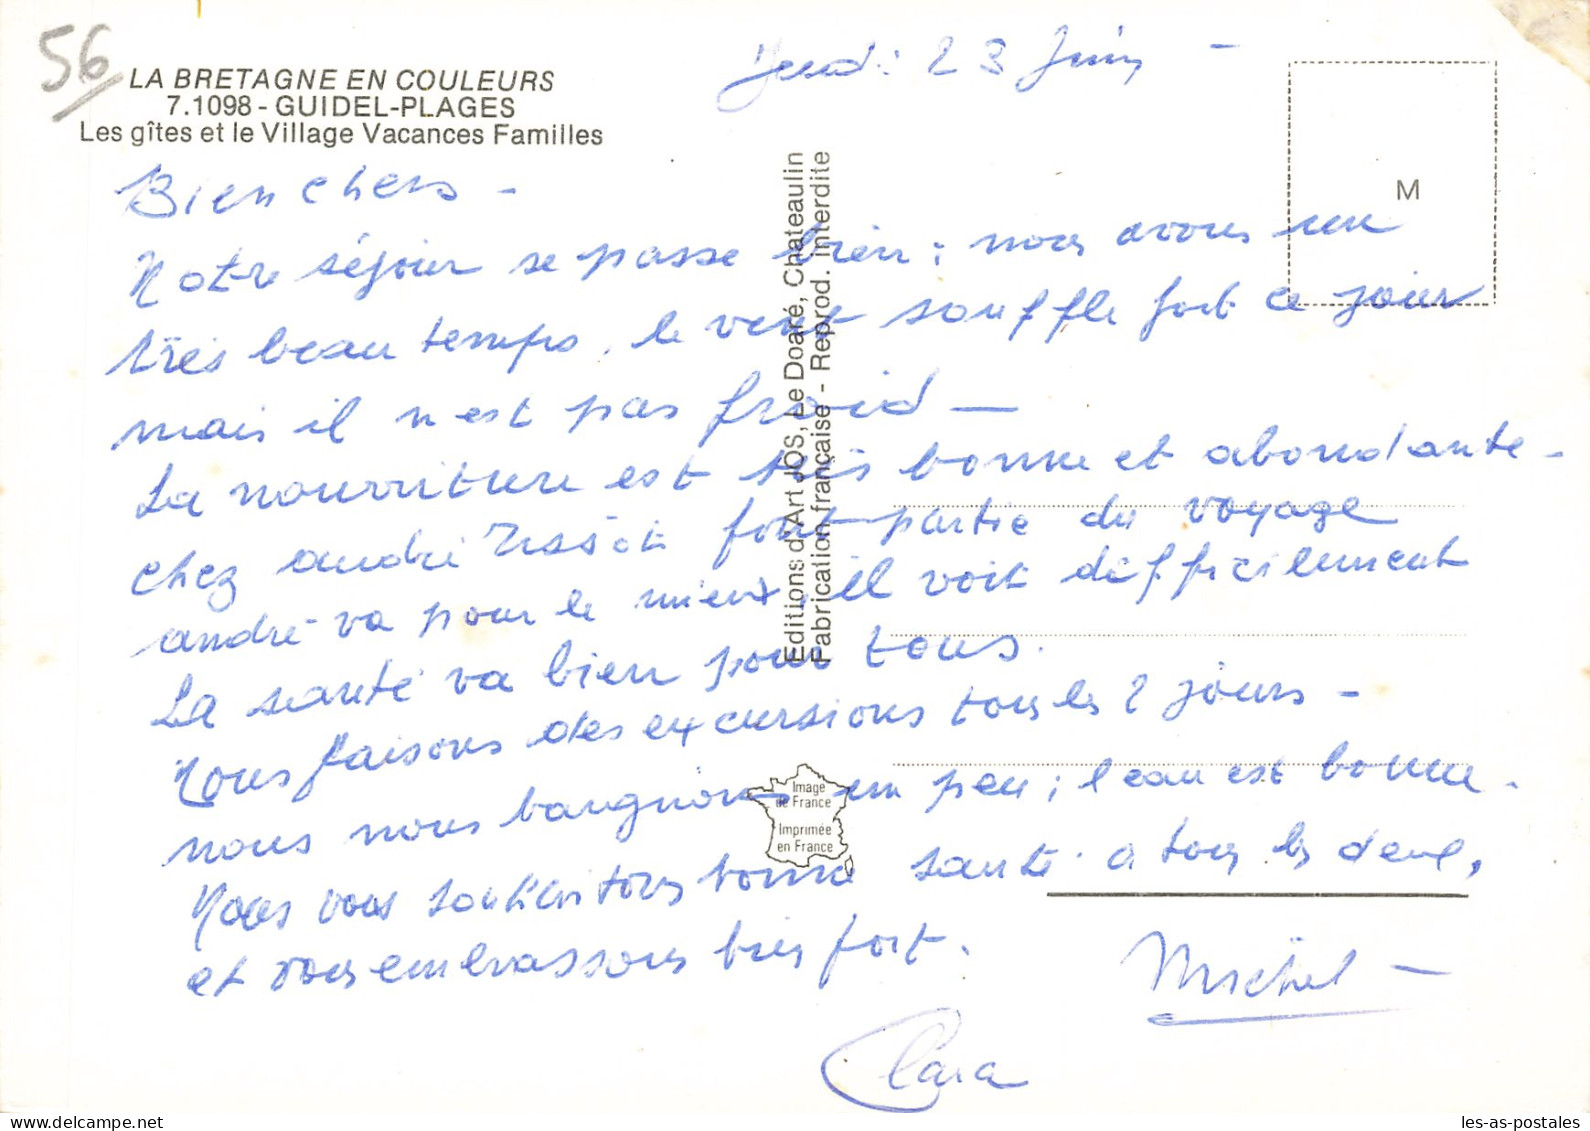 56
LA BRETAGNE EN COULEURS
7.1098 - GUIDEL-PLAGES
Les gîtes et le Village Vacances Familles
Jeudi 23 Juin -
M
Bien chers -
Notre séjour se passe bien ; nous avons un
très beau temps, le vent souffle fort ce jour
mais il n'est pas froid -
La nourriture est très bonne et abondante -
chez andré font partie du voyage
andré va pour le mieux, il voit difficilement
La santé va bien pour tous.
Nous faisons des excursions tous les 2 jours -
nous nous baugnons un peu ; l'eau est bonne.
Nous vous souhaitons bonne santé à tous les deux,
et vous embrassons bien fort.
Michel -
Clara
Editions d'Art JOS, Le Doaré, Chateaulin
Fabrication française - Reprod. Interdite
Image
de France
Imprimée
en France
les-as-postales